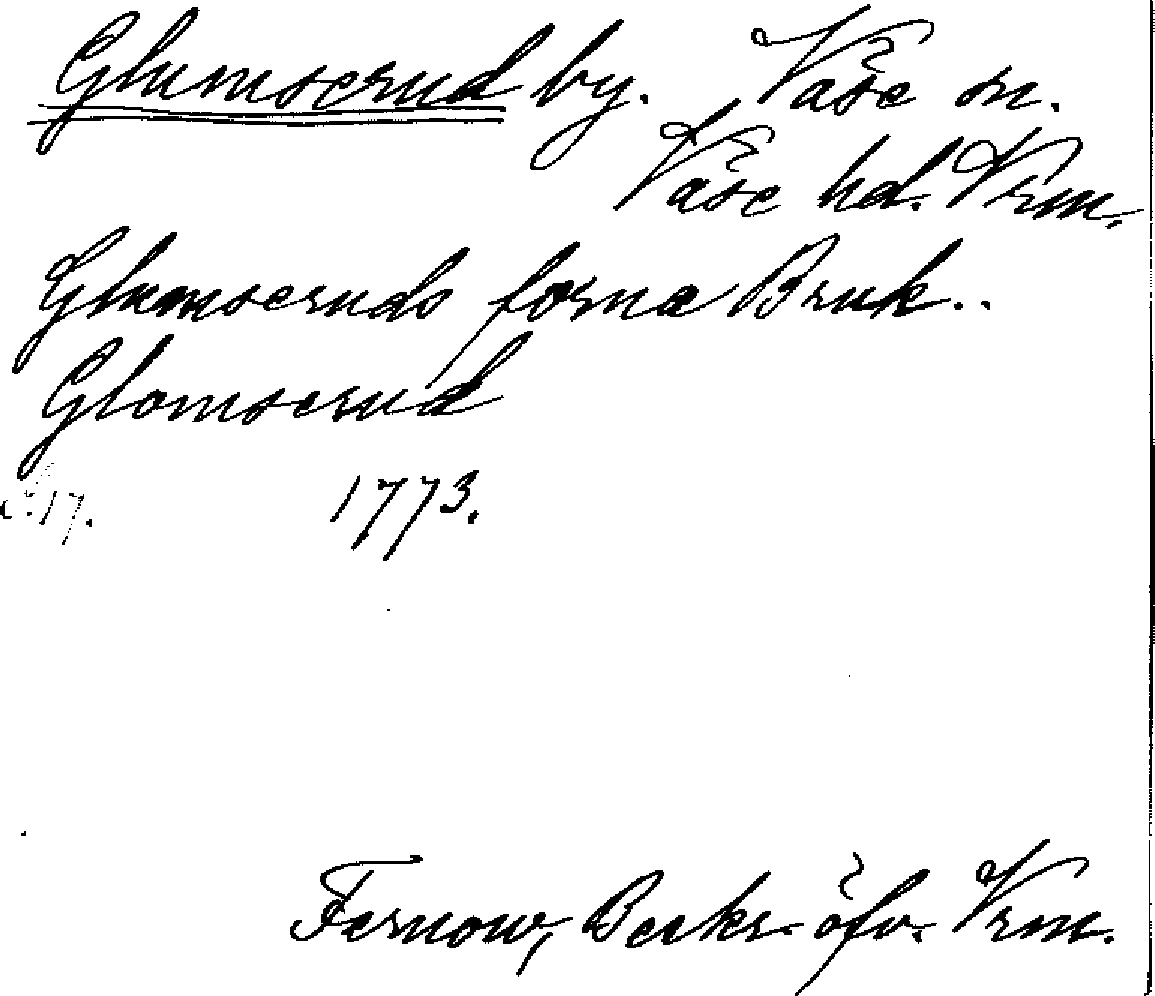 Glumserud by. Väse sn.
Väse hd. Vrm.
Glumseruds forna Bruk..
Glomserud
17.
1773.
Fernow, Beskr. öfv. Vrm.